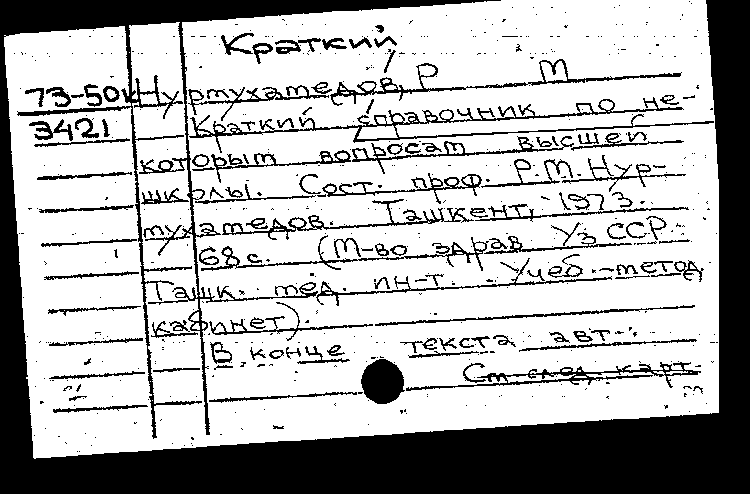 Краткий
73-50к Нурмухамедов, Р М
3421 Краткий справочник по не-
которым вопросам высшей
школы. Сост. проф. Р.М.Нур-
мухамедов. Ташкент, 1973.
68с. (М-во здрав УзССР.
Ташк. мед. ин-т. Учеб.-метод
кабинет).
В конце текста авт.
См след. карт.